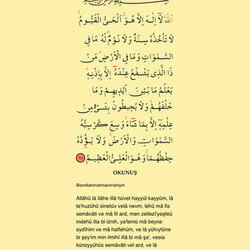 اَللّٰهُ لَٓا اِلٰهَ اِلَّا هُوَ الْحَيُّ الْقَيُّومُ
لَا تَأْخُذُهُ سِنَةٌ وَلَا نَوْمٌ لَهُ مَا فِي
السَّمٰوَاتِ وَمَا فِي الْاَرْضِ مَنْ
ذَا الَّذِي يَشْفَعُ عِنْدَهُٓ اِلَّا بِاِذْنِهِ
يَعْلَمُ مَا بَيْنَ اَيْدِيهِمْ وَمَا
خَلْفَهُمْ وَلَا يُحِيطُونَ بِشَيْءٍ مِنْ
عِلْمِهِٓ اِلَّا بِمَا شَٓاءَ وَسِعَ كُرْسِيُّهُ
السَّمٰوَاتِ وَالْاَرْضَ وَلَا يَؤُدُهُ
حِفْظُهُمَا وَهُوَ الْعَلِيُّ الْعَظِيمُ
OKUNUŞ
Bismillahirrahmanirrahiym
Allâhü lâ ilâhe illâ hüvel hayyül kayyüm, lâ
te'huzühû sinetüv velâ nevm, lehû mâ fis
semâvâti ve mâ fil ard, men zellezî yeşfeû
indehû illa bi iznih, ya'lemü mâ beyne
eydîhim ve mâ halfehüm, ve lâ yühıytûne
bi şey'im min ilmihî illâ bi mâ şâ', vesia
kürsiyyühüs semâvâti vel ard, ve lâ